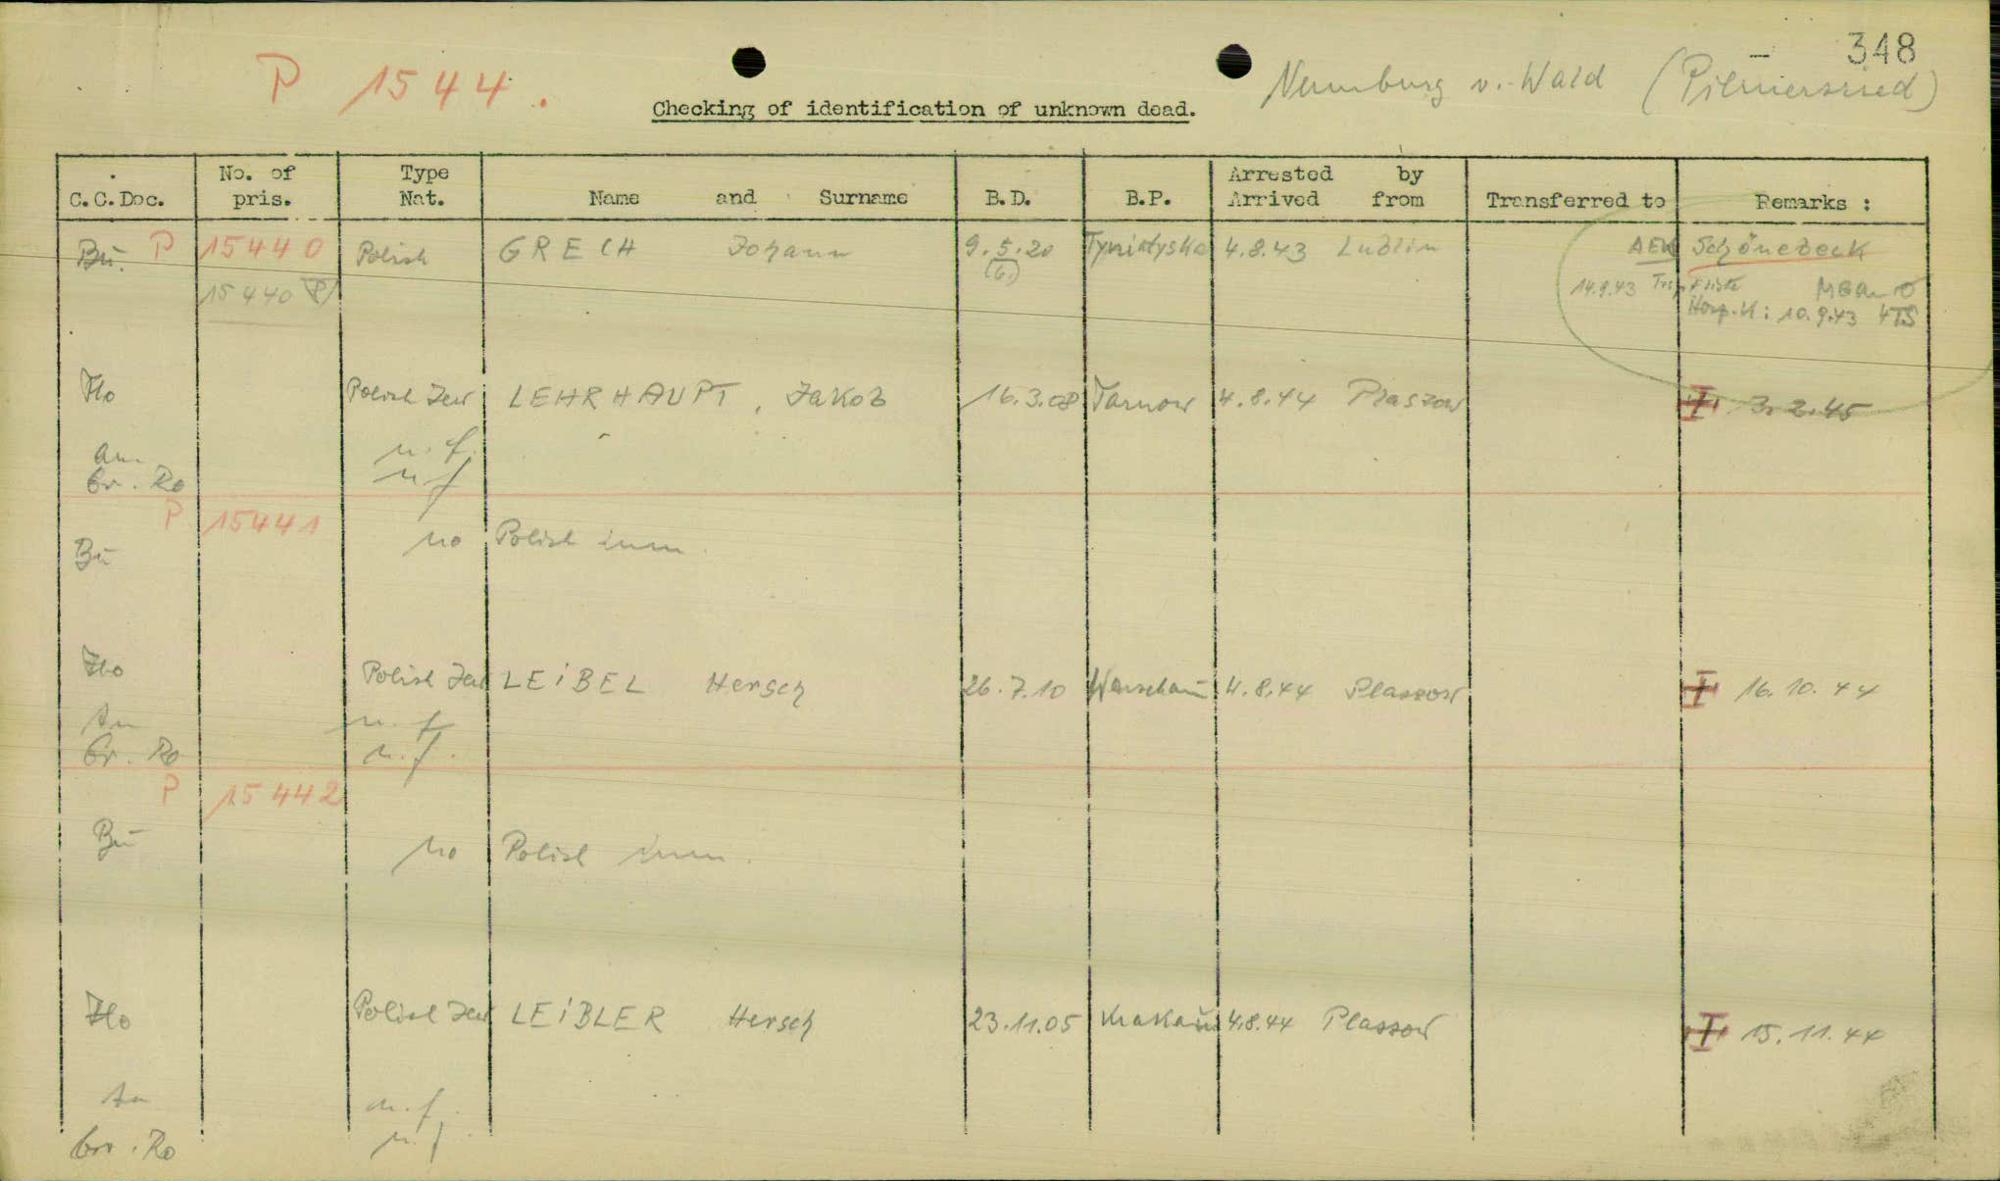 348
P 1544.
Neunburg v. Wald (Pilmersried)
Checking of identification of unknown dead.
C.C.Doc. No. of pris. Type Nat. Name and Surname B.D. B.P. Arrested by Arrived from Transferred to Remarks :
Bu. P 15440 Polish GRECH Johann 9.5.20 4.8.43 Lublin AEK Schönebeck
15440 P (6.) 14.9.43
Hosp.K: 10.9.43
Flo Polish Jew LEHRHAUPT, Jakob 16.3.08 Tarnow 4.8.44 Plaszow + 3.2.45
n.f.
Gr. Ro n f
P 15441
Bu no Polish num.
Flo Polish Jew LEIBEL Hersch 26.7.10 Warschau 4.8.44 Plaszow + 16.10.44
n.f.
Gr. Ro n.f.
P 15442
Bu no Polish num.
Flo Polish Jew LEIBLER Hersch 23.11.05 Krakau 4.8.44 Plaszow + 15.11.44
n.f.
Gr. Ro n.f